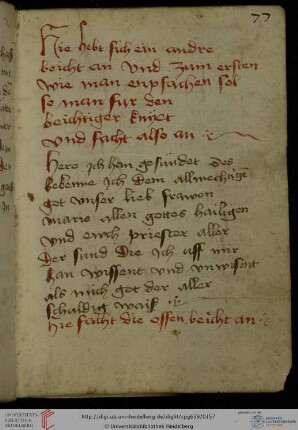 77
Hie hebt sich ein andre
beicht an Und zum ersten
wie man enpfachen sol
so man fur den
beichtiger knixt
Und facht also an
Here Jch han gesundet des
bekenne Jch dem allmechtigen
got unser lieb frawen
marie allen gottes hailigen
Und euch priester aller
der sund die Jch uff mir
han wissent und unwissent
als mich got der aller
schuldig waisz
hie facht die offen beicht an
UNIVERSITÄTS-
BIBLIOTHEK
HEIDELBERG
http://digi.ub.uni-heidelberg.de/diglit/cpg639/0157
© Universitätsbibliothek Heidelberg